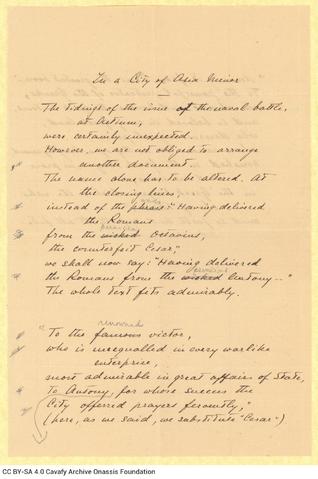 In a City of Asia Minor
The tidings of the issue of the naval battle,
at Actium,
were certainly unexpected.
However, we are not obliged to arrange
another document.
The name alone has to be altered. At
the closing lines,
instead of the phrase: "Having delivered
the Romans
from the wicked Octavius,
the counterfeit Cesar,"
we shall now say: "Having delivered
the Romans from the wicked Antony..."
The whole text fits admirably.
renowned
"To the famous victor,
who is unequalled in every warlike
enterprise,
most admirable in great affairs of State,
To Antony, for whose success the
City offered prayers fervently,"
(here, as we said, we substitute "Cesar")
CC BY-SA 4.0 Cavafy Archive Onassis Foundation